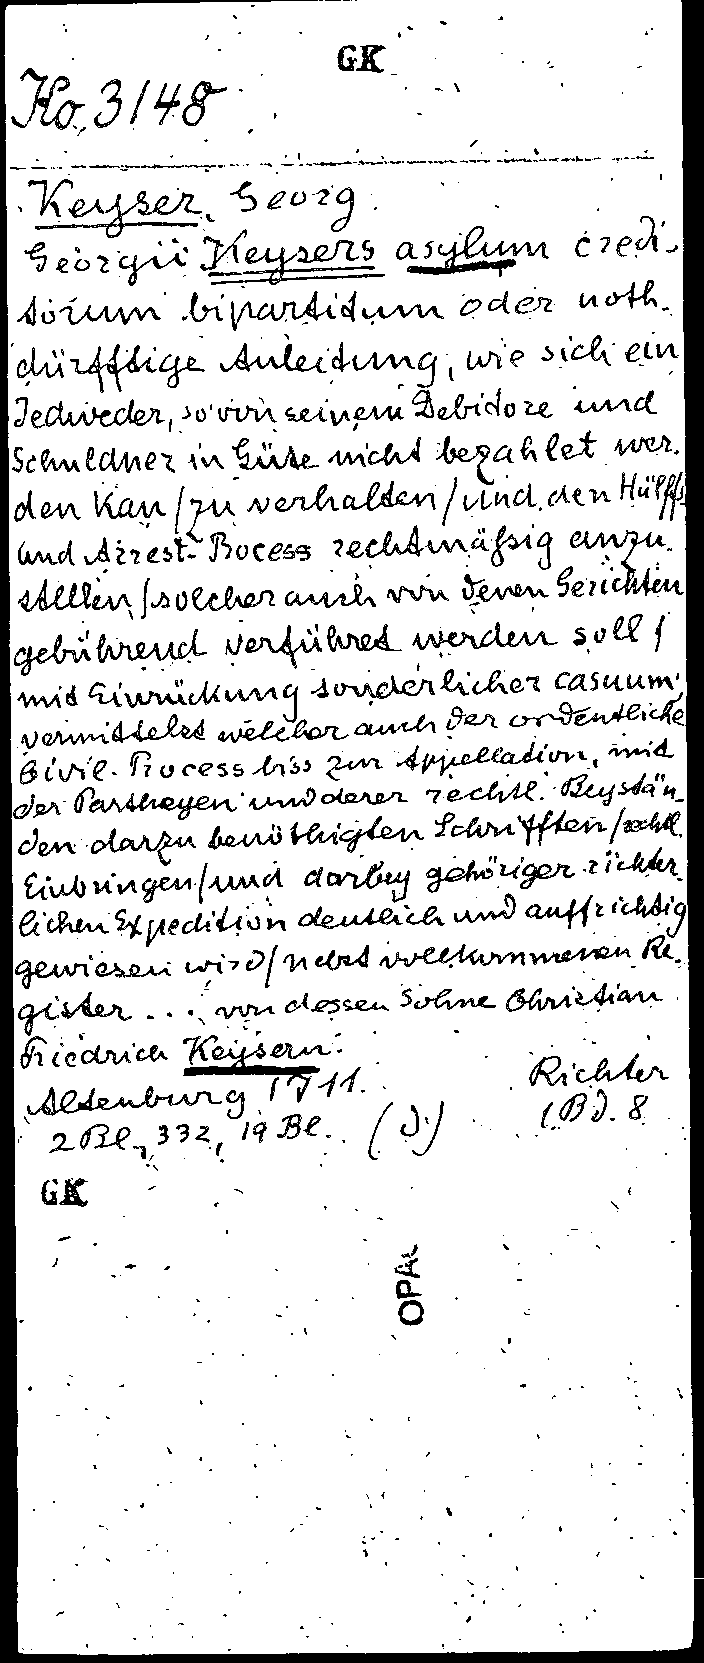 GK
Ko, 3148
Keyser, Georg
Georgii Keysers asylum credi-
torum bipartitum oder noth-
dürfftige Anleitung, wie sich ein
Jedweder, so von seinem Debitore und
Schuldner in Güte nicht bezahlet wer-
den kan / zu verhalten / und den Hülffs
und Arrest-Process rechtmäßig anzu-
stellen / solcher auch von denen Gerichten
gebührend verführet werden soll /
mit Einrückung sonderlicher casuum,
vermittelst welcher auch der ordentliche
Civil-Process biss zur Appellation, mit
der Partheyen und derer rechtl. Beystän-
den darzu benöthigten Schrifften / rechtl.
Einbringen / und darbey gehöriger richter-
lichen Expedition deutlich und auffrichtig
gewiesen wird / nebst vollkommenen Re-
gister ... von dessen Sohne Christian
Friedrich Keysern.
Altenburg 1711.
Richter
2 Bl., 332, 19 Bl. (J.)
1 Bd. 8
GK
OPAL